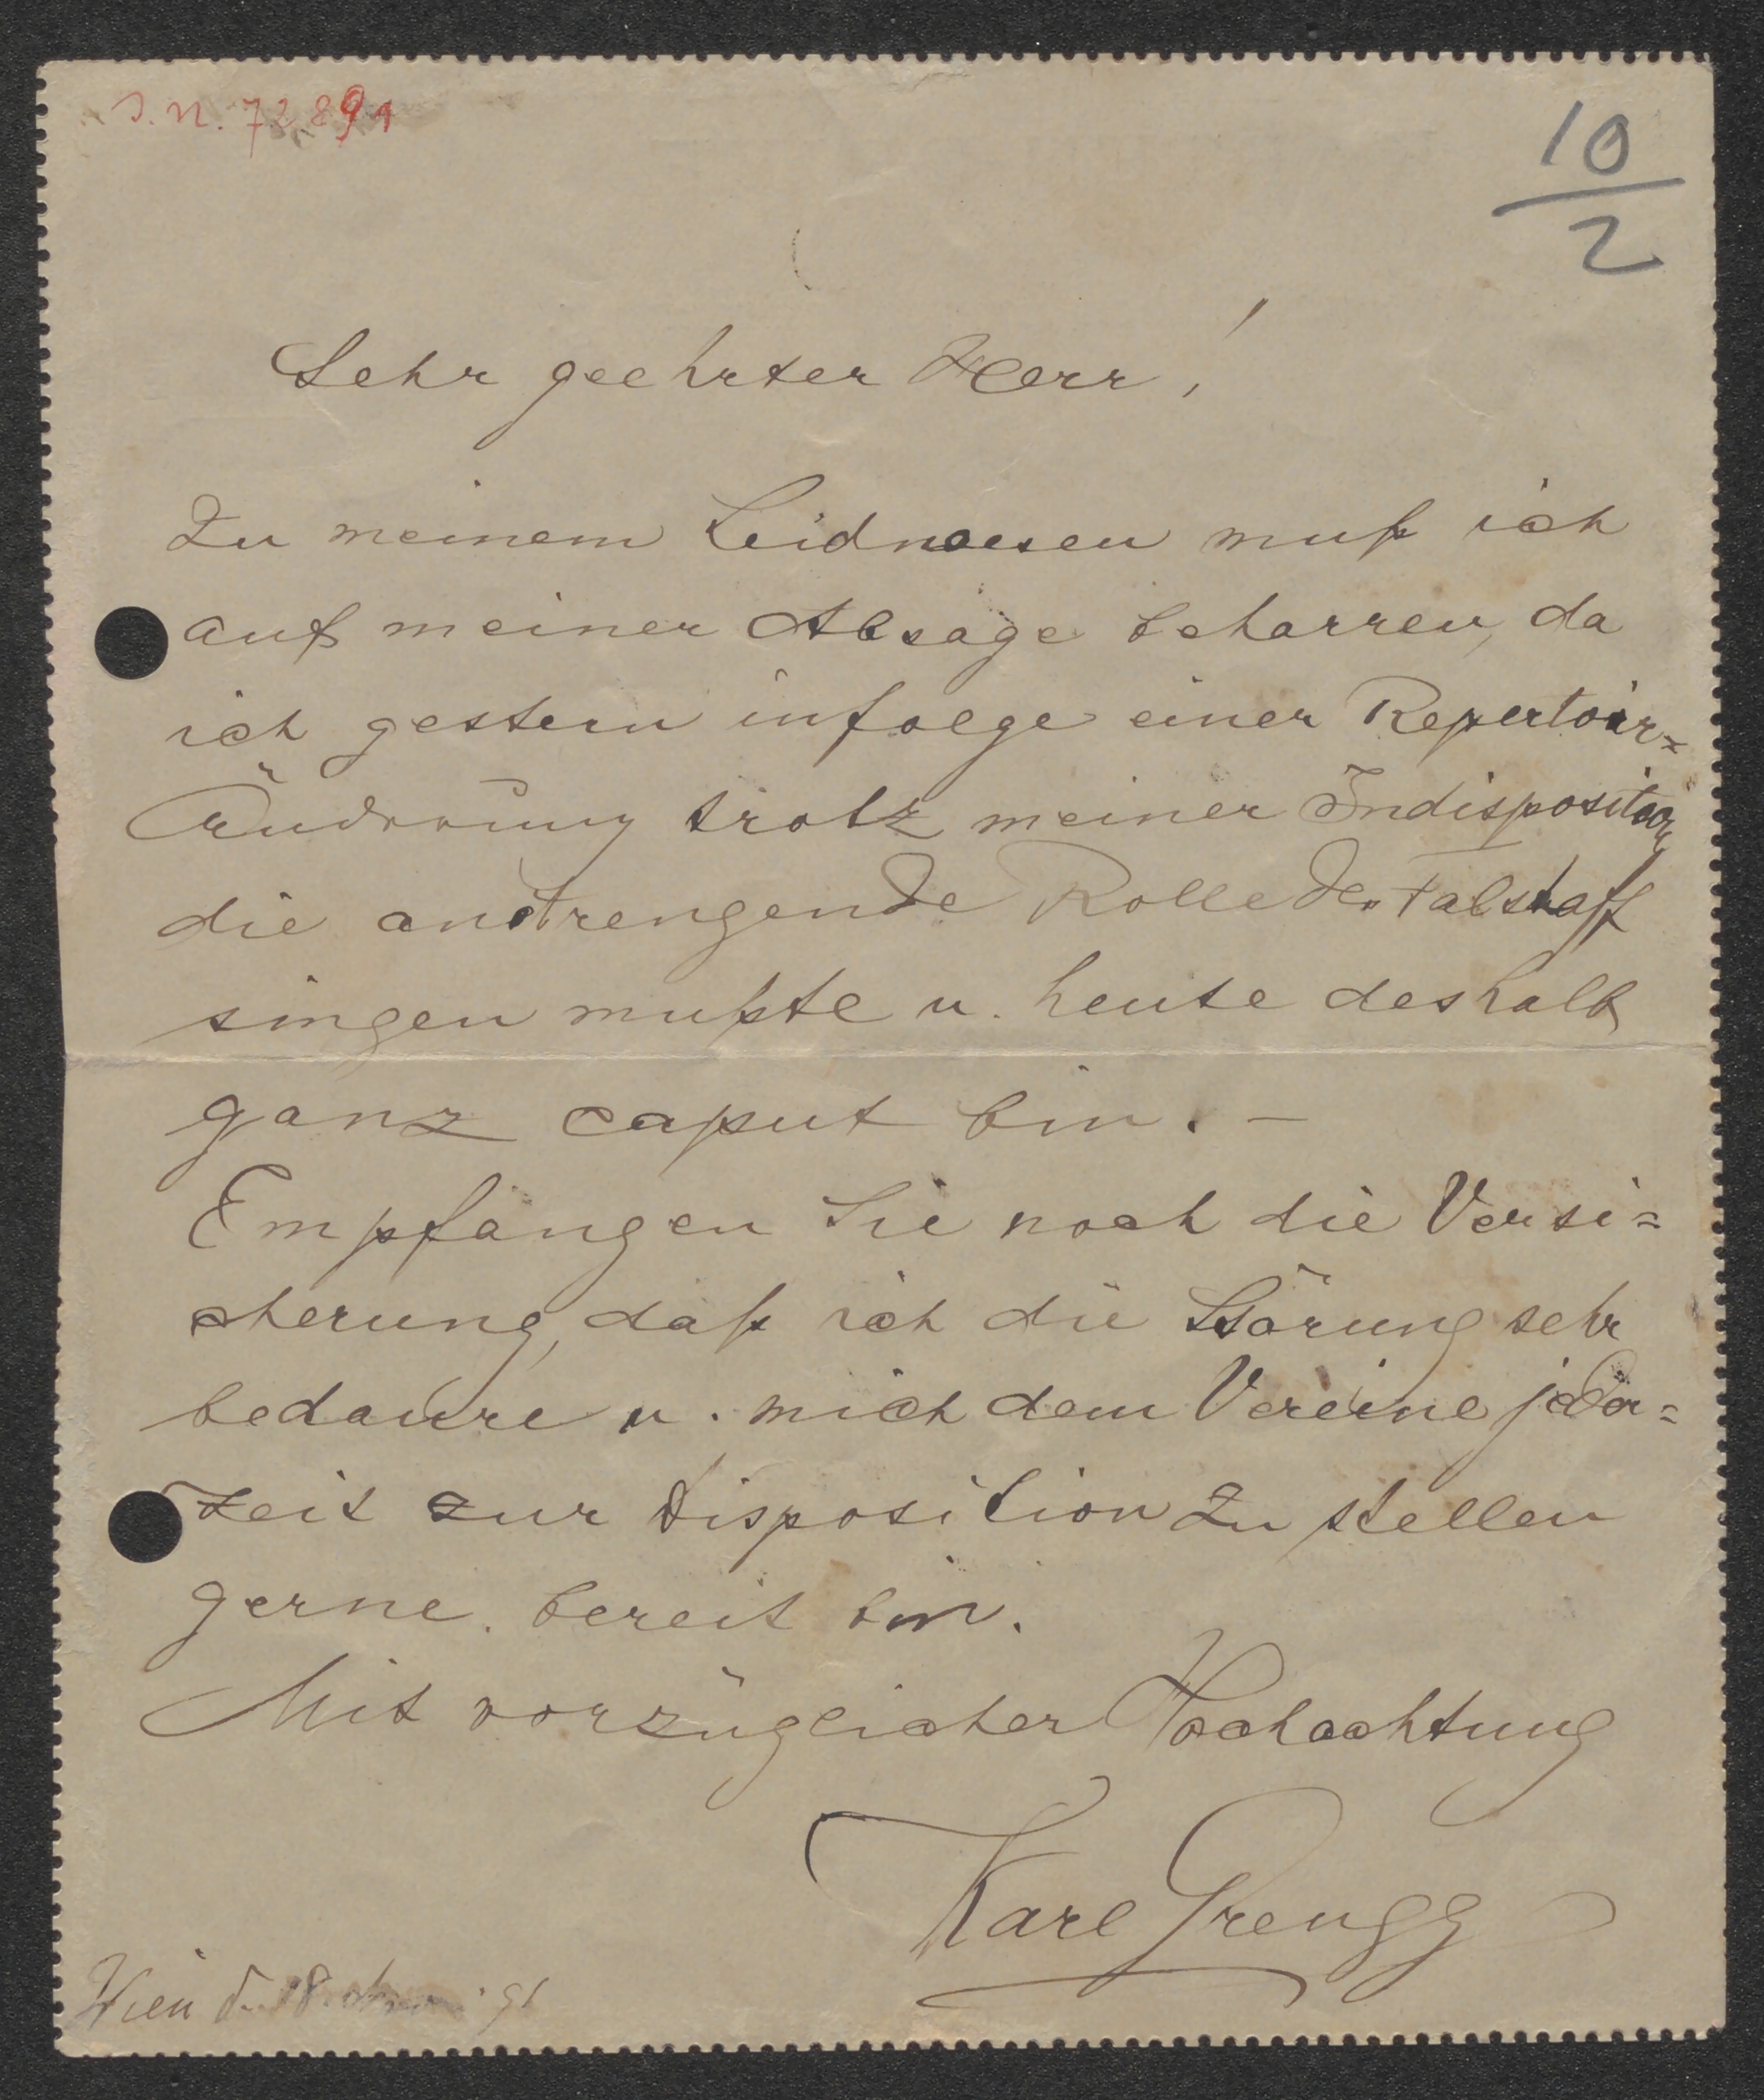 J.N. 72891
10
2
Sehr geehrter Herr!
Zu meinem Leidwesen muß ich
auf meiner Absage beharren, da
ich gestern infolge einer Repertoir=
Änderung trotz meiner Indisposition
die anstrengende Rolle des Falstaff
singen mußte u. heute deshalb
ganz caput bin. –
Empfangen Sie noch die Versi=
cherung, daß ich die Störung sehr
bedaure u. mich dem Vereine jeder=
zeit zur Disposition zu stellen
gerne bereit bin.
Mit vorzüglicher Hochachtung
Karl Grengg
Wien d. 18. 91